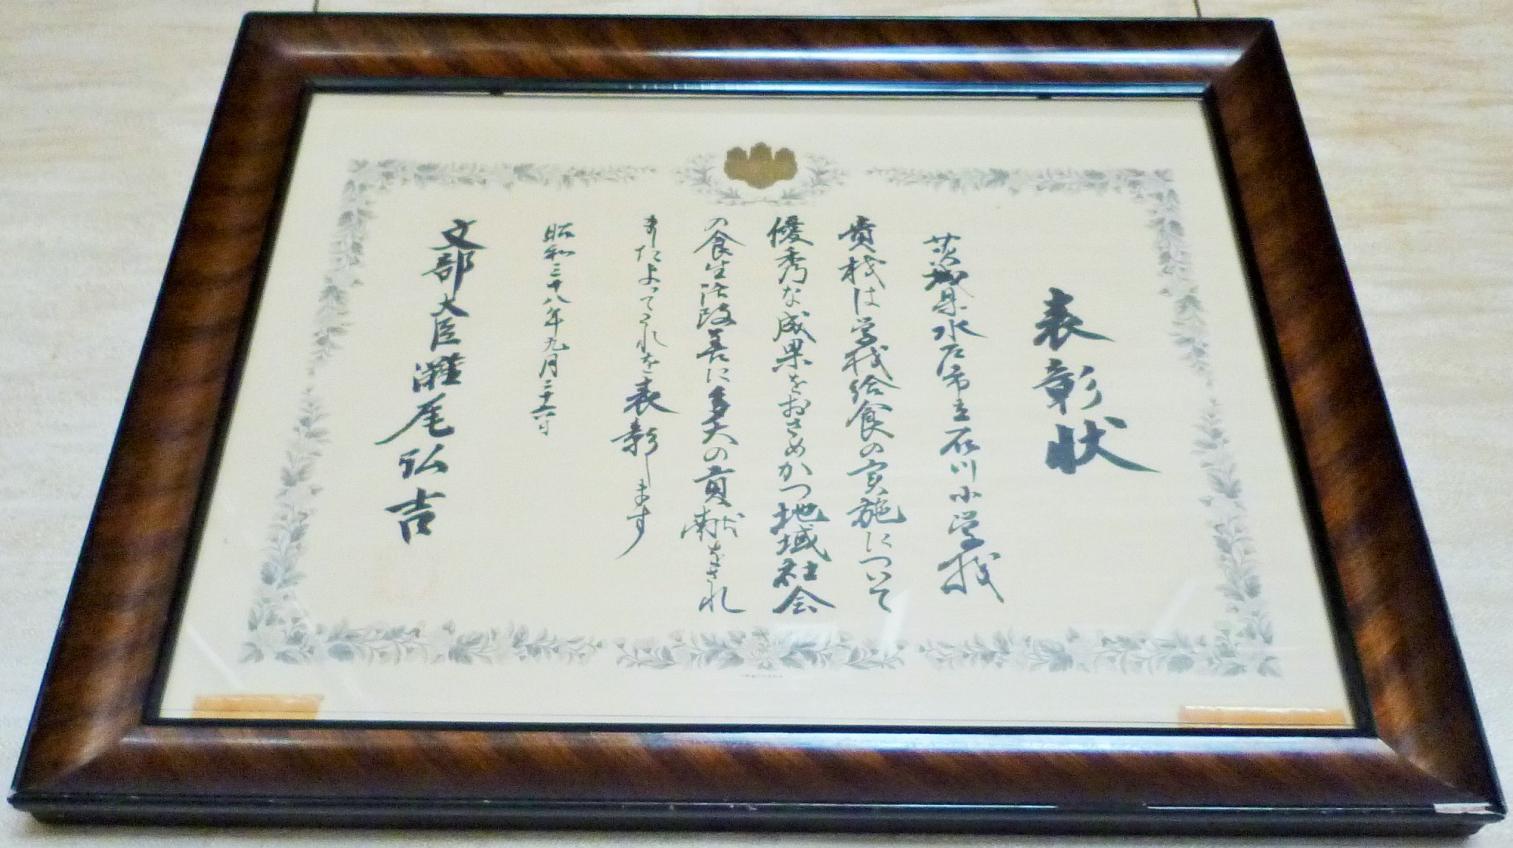 表彰状
茨城県水戸市立石川小学校
貴校は学校給食の実施について
優秀な成果をおさめかつ地域社会
の食生活改善に多大の貢献をされ
ましたよってこれを表彰します
昭和三十八年九月二十六日
文部大臣灘尾弘吉